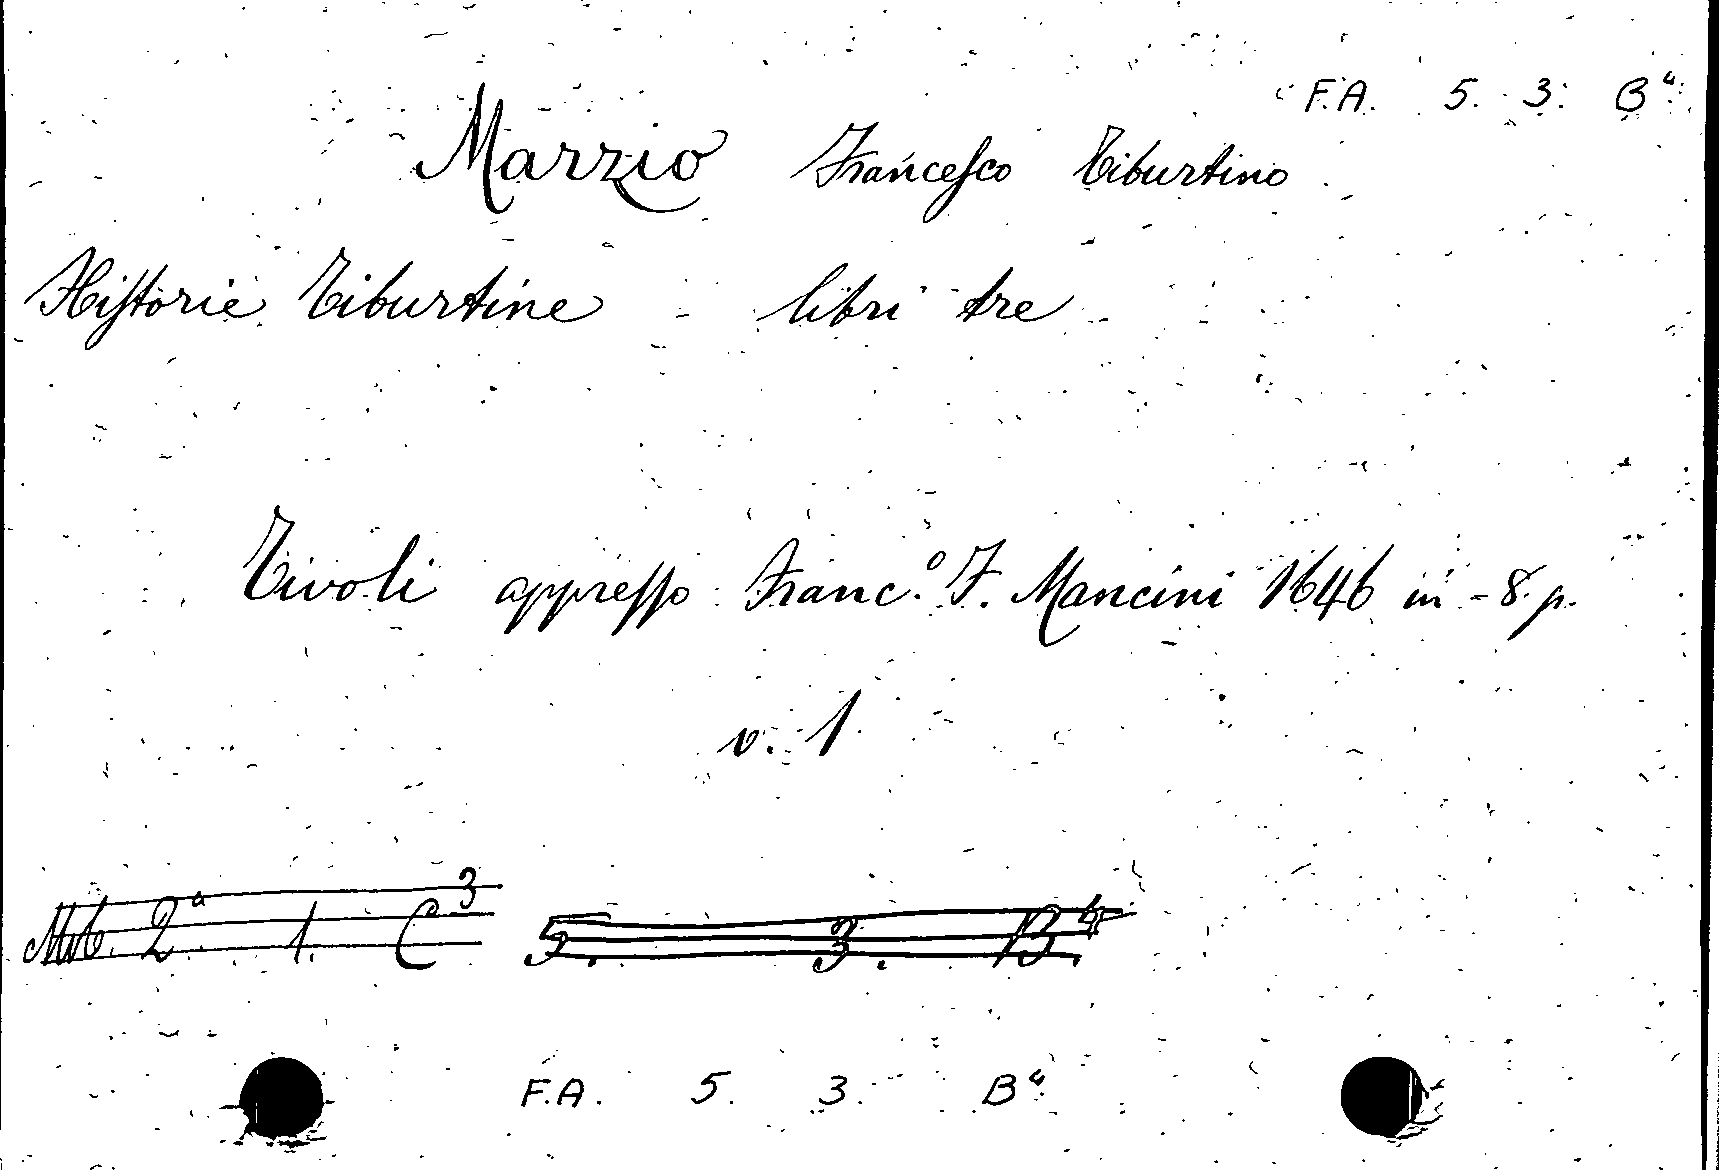 F.A. 5. 3. B⁴
Marzio Francesco Tiburtino
Historie Tiburtine - libri tre
Tivoli appresso Franc.º F. Mancini 1646 in - 8. p.
v. 1
Mb. 2ª 1. C³ 5. 3. B⁴.
F.A. 5. 3. B⁴